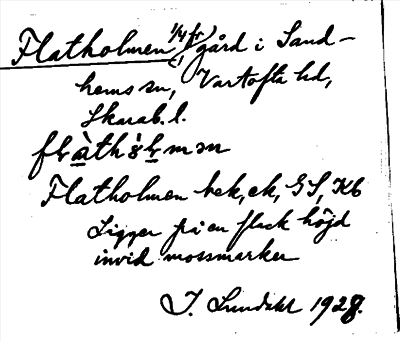 Flatholmen (1/4 fr) gård i Sand-
hems sn, Vartofta hd,
Skarab. l.
Flatholmen bek, ek, GS, Kb
Ligger på en flack höjd
invid mossmarker
J. Lundahl 1928.